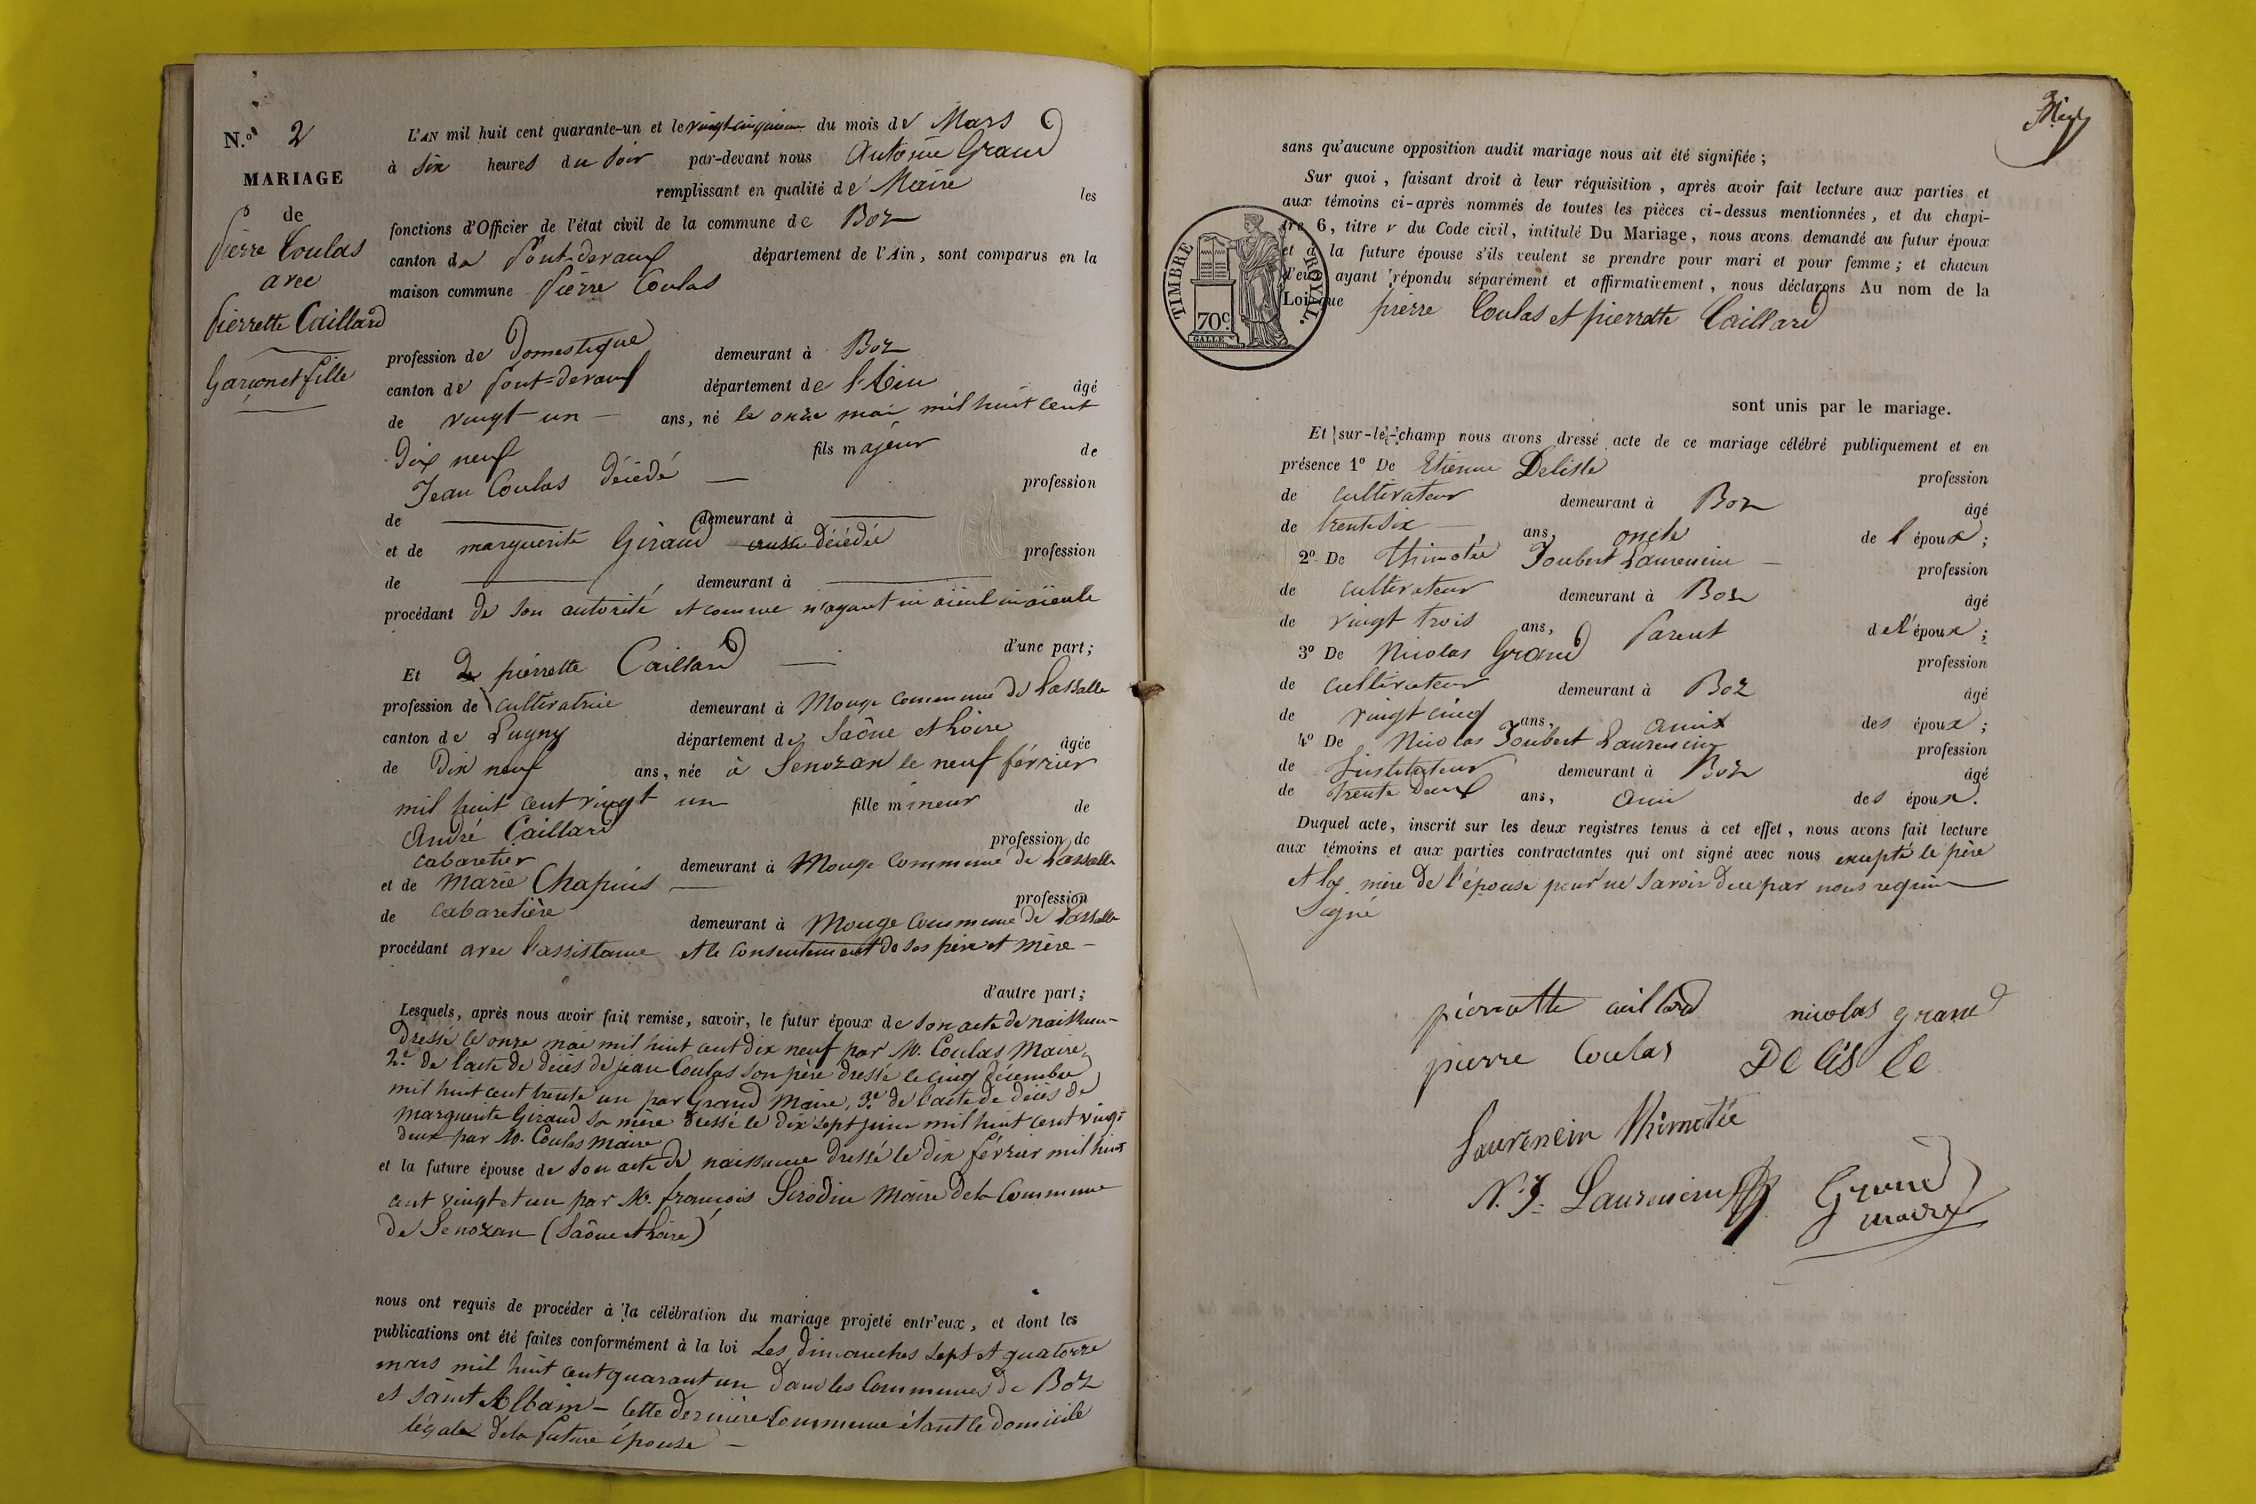 N.º 2
MARIAGE
de
pierre Coulas
avec
pierrette Caillard
Garçon et fille
L'AN mil huit cent quarante-un et le vingt cinquieme du mois de Mars
à six heures du soir par-devant nous Antoine Grand
remplissant en qualité de Maire les
fonctions d'Officier de l'état civil de la commune de Boz
canton de Pont-devaux département de l'Ain, sont comparus en la
maison commune pierre Coulas
profession de Domestique demeurant à Boz
canton de Pont-devaux département de l'Ain âgé
de vingt un ans, né le onze mai mil huit cent
dix neuf fils majeur de
Jean Coulas décédé profession
de demeurant à
et de marguerite Giraud décédée profession
de demeurant à
procédant de son autorité et comme n'ayant ni aïeul ni aïeule
d'une part;
Et pierrette Caillard
profession de cultivatrice demeurant à Mouge commune de Lassalle
canton de Lugny département de Saône et Loire âgée
de dix neuf ans, née à Senozan le neuf février
mil huit cent vingt un fille mineur de
André Caillard profession de
cabaretier demeurant à Mouge commune de Lassalle
et de Marie Chapuis profession
de cabaretière demeurant à Mouge commune de Lassalle
procédant avec l'assistance et le consentement de ses père et mère
d'autre part;
Lesquels, après nous avoir fait remise, savoir, le futur époux de son acte de naissance
dressé le onze mai mil huit cent dix neuf par M. Coulas Maire,
2.º de l'acte de décès de jean Coulas son père dressé le cinq décembre
mil huit cent trente un par Grand Maire, 3.º de l'acte de décès de
marguerite Giraud sa mère dressé le dix sept juin mil huit cent vingt
deux par M. Coulas maire
et la future épouse de son acte de naissance dressé le dix février mil huit
cent vingt et un par M. françois Serodin Maire de la Commune
de Senozan (Saône et Loire)
nous ont requis de procéder à la célébration du mariage projeté entr'eux, et dont les
publications ont été faites conformément à la loi Les dimanches sept et quatorze
mars mil huit cent quarant un dans les Communes de Boz
et Saint Albain – Cette dernière Commune étant le domicile
légale de la future épouse
sans qu'aucune opposition audit mariage nous ait été signifiée;
Sur quoi, faisant droit à leur réquisition, après avoir fait lecture aux parties et
aux témoins ci-après nommés de toutes les pièces ci-dessus mentionnées, et du chapi-
tre 6, titre v du Code civil, intitulé Du Mariage, nous avons demandé au futur époux
et à la future épouse s'ils veulent se prendre pour mari et pour femme; et chacun
d'eux ayant répondu séparément et affirmativement, nous déclarons Au nom de la
Loi que pierre Coulas et pierrette Caillard
TIMBRE ROYAL.
70 c.
GALLE
sont unis par le mariage.
Et sur-le-champ nous avons dressé acte de ce mariage célébré publiquement et en
présence 1º De Etienne Delisle profession
de cultivateur demeurant à Boz âgé
de trente six ans, oncle de l'époux;
2º De thimotée Joubert Laurencin profession
de cultivateur demeurant à Boz âgé
de vingt trois ans, Parent de l'époux;
3º De Nicolas Grand profession
de cultivateur demeurant à Boz âgé
de vingt cinq ans, ami des époux;
4º De Nicolas Joubert Laurencin profession
de Instituteur demeurant à Boz âgé
de trente deux ans, ami des époux.
Duquel acte, inscrit sur les deux registres tenus à cet effet, nous avons fait lecture
aux témoins et aux parties contractantes qui ont signé avec nous excepté le père
et la mère de l'épouse pour ne savoir de ce par nous requis
Signé
pierrette caillard nicolas grand
pierre Coulas De lis le
Laurencin thimotée
N. J. Laurencin Grand
maire